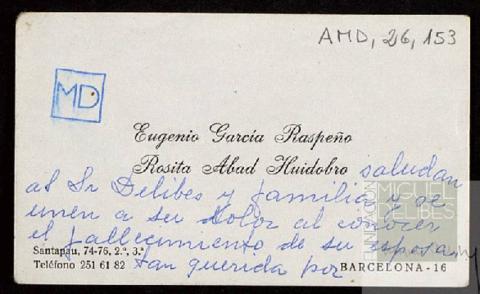 AMD, 26, 153
MD
Eugenio García Raspeño
Rosita Abad Huidobro saludan
al Sr Delibes y familia y se
unen a su dolor al conocer
el fallecimiento de su esposa,
Santapau, 74-76, 2.º, 3.ª
Teléfono 251 61 82 tan querida por BARCELONA - 16
FUNDACIÓN
MIGUEL
DELIBES